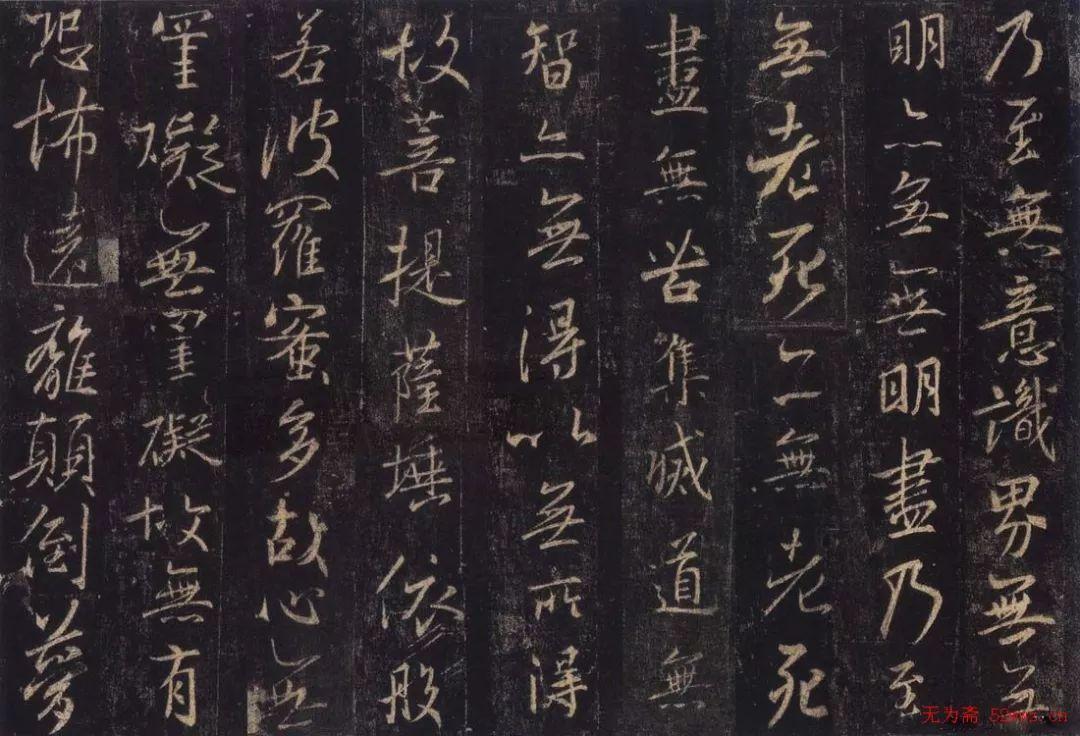 乃至無意識界無無
明亦無無明盡乃至
無老死亦無老死
盡無苦集滅道無
智亦無得以無所得
故菩提薩埵依般
若波羅蜜多故心無
罣礙無罣礙故無有
恐怖遠離顛倒夢
无为斋